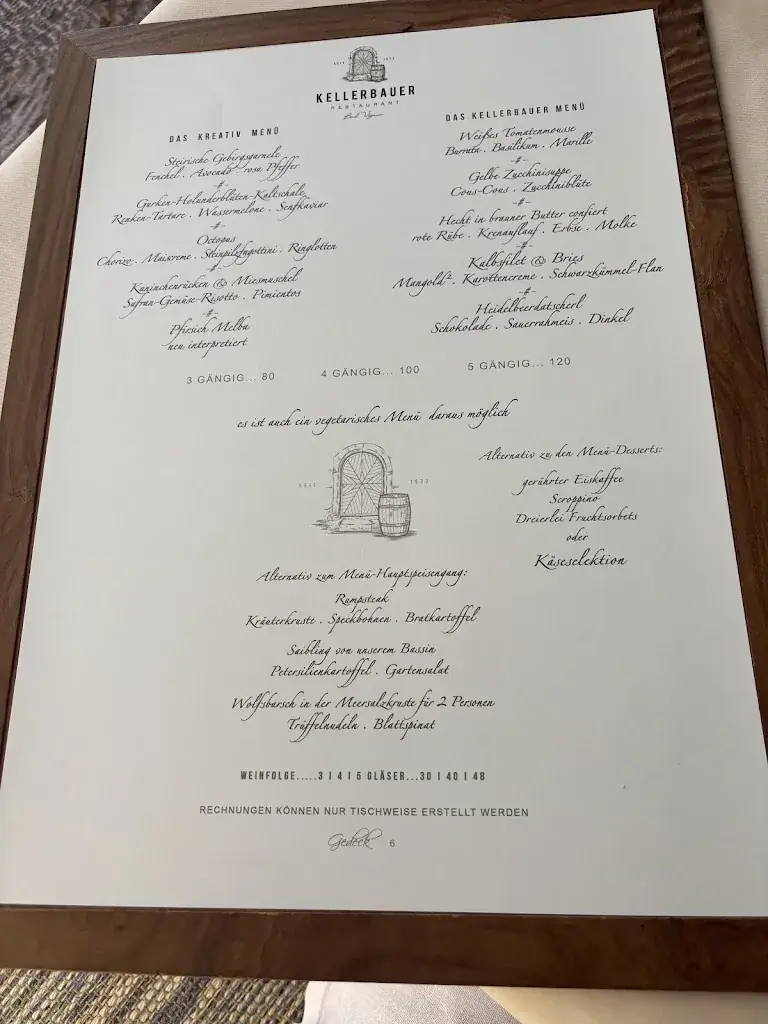 SEIT 1533
KELLERBAUER
RESTAURANT
Bad Vigaun
DAS KREATIV MENÜ
Steirische Gebirgsgarnele
Fenchel . Avocado . rosa Pfeffer
-#-
Gurken-Holunderblüten-Kaltschale
Renken-Tartare . Wassermelone . Senfkaviar
-#-
Octopus
Chorizo . Maiscreme . Steinpilzfagottini . Ringlotten
-#-
Kaninchenrücken & Miesmuschel
Safran-Gemüse-Risotto . Pimientos
-#-
Pfirsich Melba
neu interpretiert
DAS KELLERBAUER MENÜ
Weißes Tomatenmousse
Burrata . Basilikum . Marille
-#-
Gelbe Zucchinisuppe
Cous-Cous . Zucchiniblüte
-#-
Hecht in brauner Butter confiert
rote Rübe . Krenauflauf . Erbse . Molke
-#-
Kalbsfilet & Bries
Mangold² . Karottencreme . Schwarzkümmel-Flan
-#-
Heidelbeerdatscherl
Schokolade . Sauerrahmeis . Dinkel
3 GÄNGIG... 80 4 GÄNGIG... 100 5 GÄNGIG... 120
es ist auch ein vegetarisches Menü daraus möglich
Alternativ zu den Menü-Desserts:
gerührter Eiskaffee
Scroppino
Dreierlei Fruchtsorbets
oder
Käseselektion
Alternativ zum Menü-Hauptspeisengang:
Rumpsteak
Kräuterkruste . Speckbohnen . Bratkartoffel
Saibling von unserem Bassin
Petersilienkartoffel . Gartensalat
Wolfsbarsch in der Meersalzkruste für 2 Personen
Trüffelnudeln . Blattspinat
WEINFOLGE.....3 I 4 I 5 GLÄSER...30 I 40 I 48
RECHNUNGEN KÖNNEN NUR TISCHWEISE ERSTELLT WERDEN
Gedeck 6